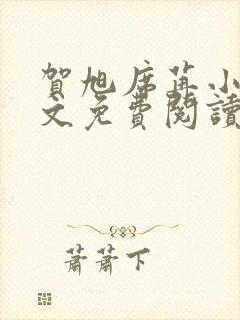 賀旭席苒小
文免費閱讀
蕭蕭下